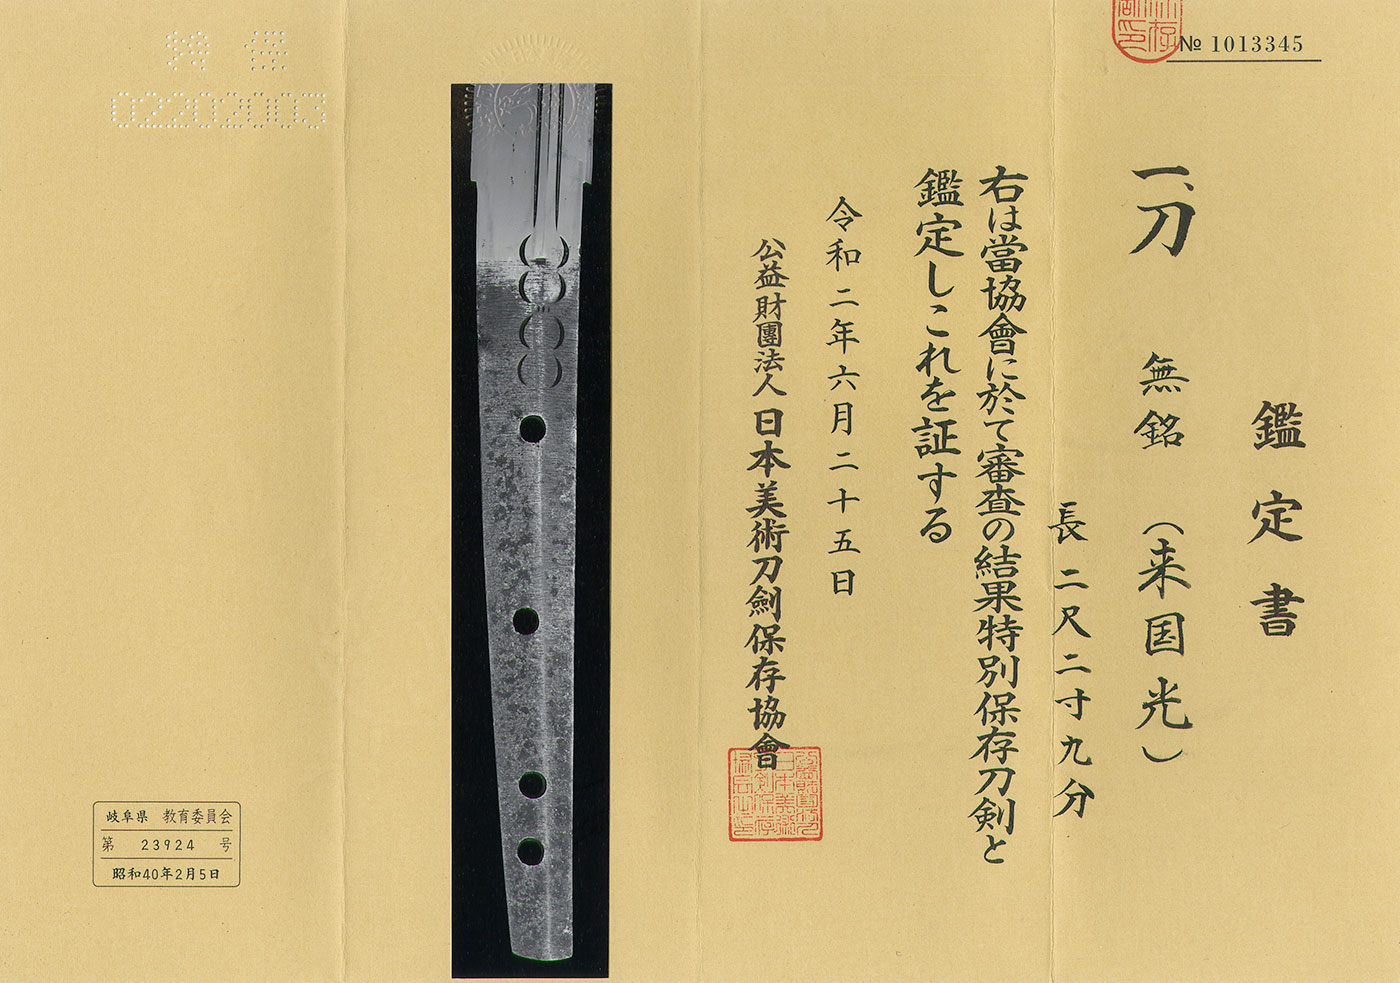 № 1013345
鑑定書
一、刀 無銘 （来国光）
長二尺二寸九分
右は當協會に於て審査の結果特別保存刀剣と
鑑定しこれを証する
令和二年六月二十五日
公益財團法人 日本美術刀劍保存協會
02202003
岐阜県 教育委員会
第 23924 号
昭和40年2月5日